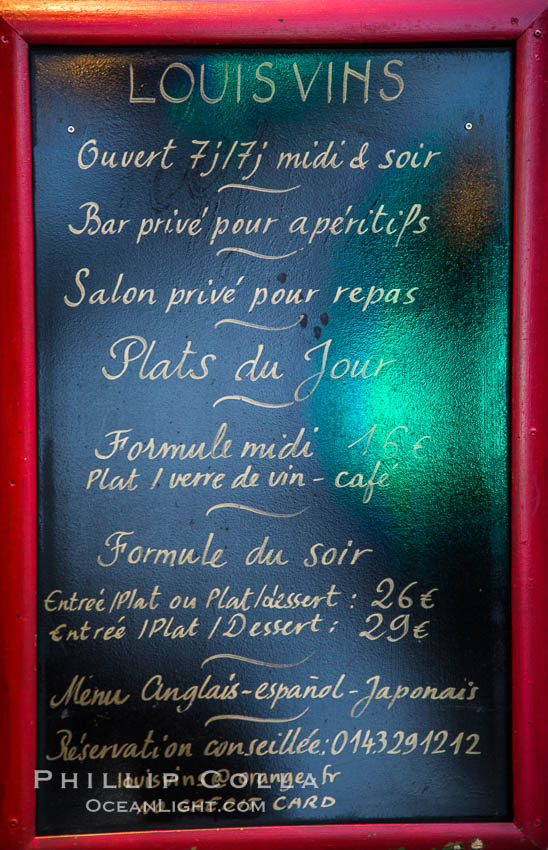 LOUIS VINS
Ouvert 7j/7j midi & soir
Bar privé pour apéritifs
Salon privé pour repas
Plats du Jour
Formule midi 16€
Plat / verre de vin - café
Formule du soir
Entreé/Plat ou Plat/dessert : 26€
Entreé / Plat / Dessert : 29€
Menu Anglais-español-Japonais
Réservation conseillée: 0143291212
louisvins@orange.fr
CARD
PHILLIP COLLA
OCEANLIGHT.COM